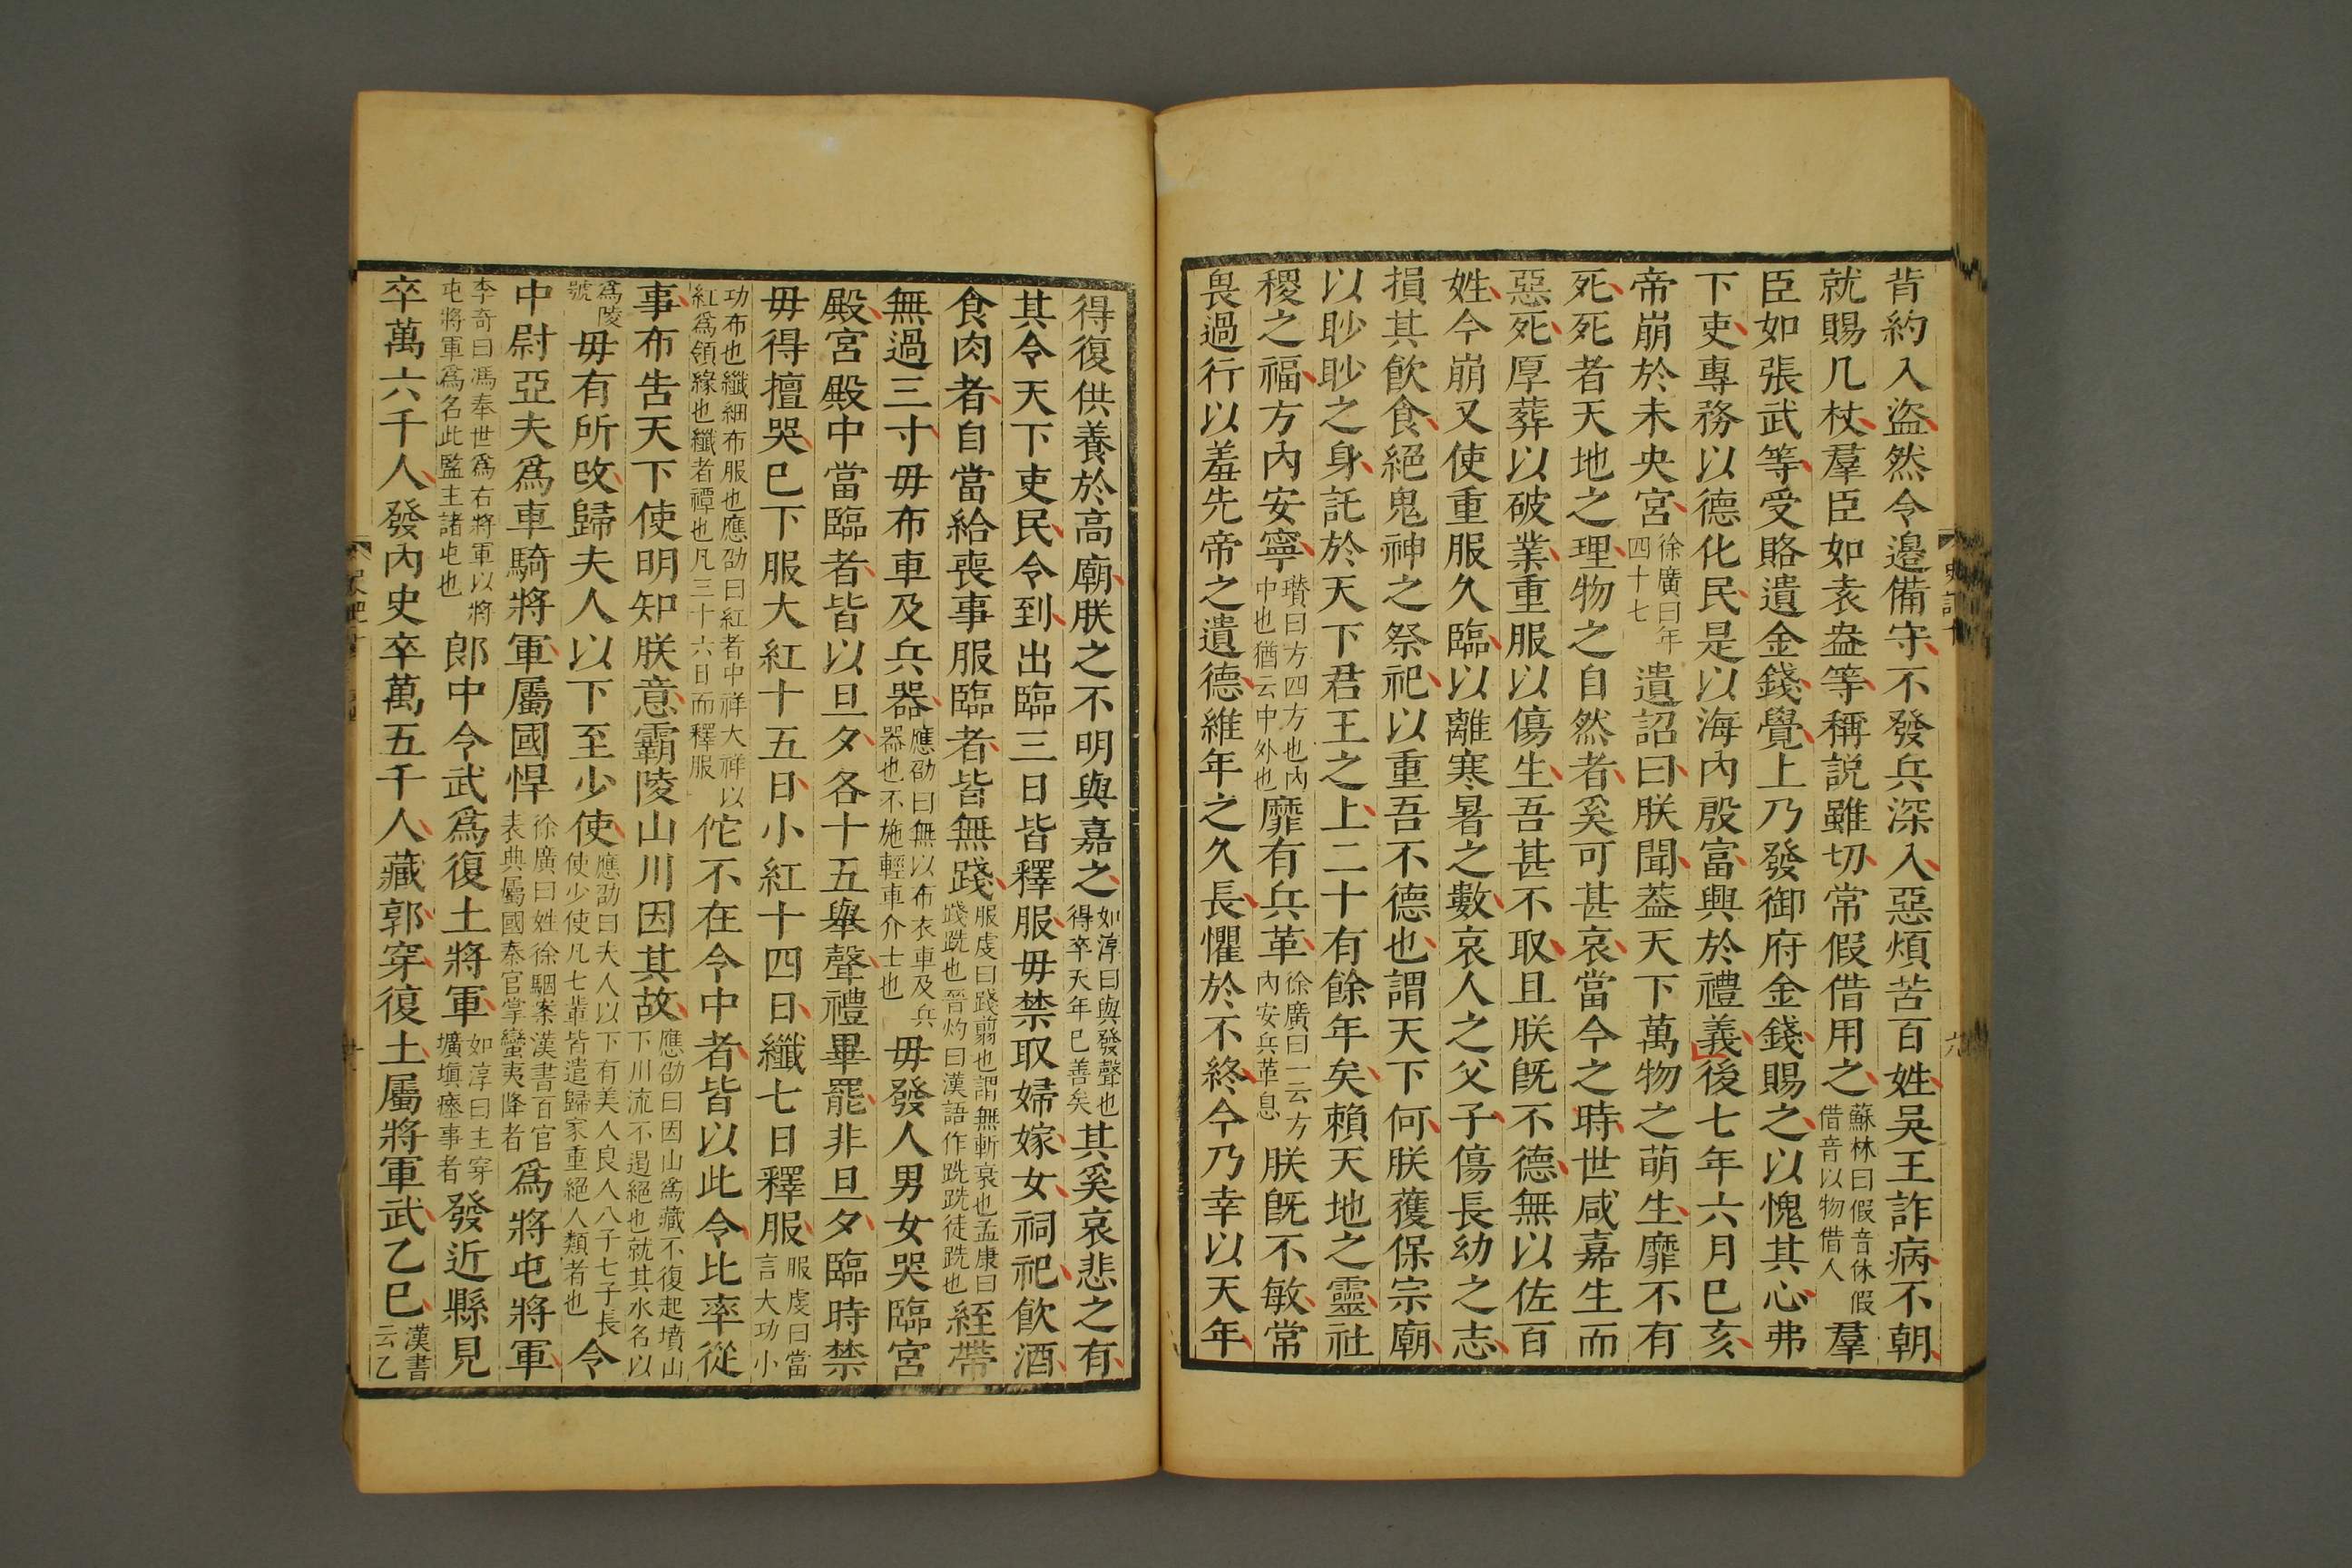 背約入盜然令邊備守不發兵深入惡煩苦百姓吳王詐病不朝
就賜几杖羣臣如袁盎等稱説雖切常假借用之蘇林曰假音休假借音以物借人羣
臣如張武等受賂遺金錢覺上乃發御府金錢賜之以愧其心弗
下吏專務以德化民是以海內殷富興於禮義後七年六月巳亥
帝崩於未央宮徐廣曰年四十七遺詔曰朕聞葢天下萬物之萌生靡不有
死死者天地之理物之自然者奚可甚哀當今之時世咸嘉生而
惡死厚葬以破業重服以傷生吾甚不取且朕旣不德無以佐百
姓今崩又使重服久臨以離寒暑之數哀人之父子傷長幼之志
損其飮食絕鬼神之祭祀以重吾不德也謂天下何朕獲保宗廟
以眇眇之身託於天下君王之上二十有餘年矣賴天地之靈社
稷之福方內安寧瓚曰方四方也內中也猶云中外也靡有兵革徐廣曰一云方內安兵革息朕旣不敏常
畏過行以羞先帝之遺德維年之久長懼於不終今乃幸以天年
得復供養於高廟朕之不明與嘉之如淳曰與發聲也得卒天年巳善矣其奚哀悲之有
其令天下吏民令到出臨三日皆釋服毋禁取婦嫁女祠祀飮酒
食肉者自當給喪事服臨者皆無踐服虔曰踐翦也謂無斬衰也孟康曰踐跣也晉灼曰漢語作跣跣徒跣也絰帶
無過三寸毋布車及兵器應劭曰無以布衣車及兵器也不施輕車介士也毋發人男女哭臨宮
殿宮殿中當臨者皆以旦夕各十五舉聲禮畢罷非旦夕臨時禁
毋得擅哭巳下服大紅十五日小紅十四日纖七日釋服服虔曰當言大功小
功布也纖細布服也應劭曰紅者中祥大祥以紅爲領緣也纖者禫也凡三十六日而釋服佗不在令中者皆以此令比率從
事布告天下使明知朕意霸陵山川因其故應劭曰因山爲藏不復起墳山下川流不遏絕也就其水名以
爲陵號毋有所改歸夫人以下至少使應劭曰夫人以下有美人良人八子七子長使少使凡七輩皆遣歸家重絕人類者也令
中尉亞夫爲車騎將軍屬國悍徐廣曰姓徐駰案漢書百官表典屬國秦官掌蠻夷降者爲將屯將軍
李奇曰馮奉世爲右將軍以將屯將軍爲名此監主諸屯也郎中令武爲復土將軍如淳曰主穿壙塡瘞事者發近縣見
卒萬六千人發內史卒萬五千人藏郭穿復土屬將軍武乙巳漢書云乙